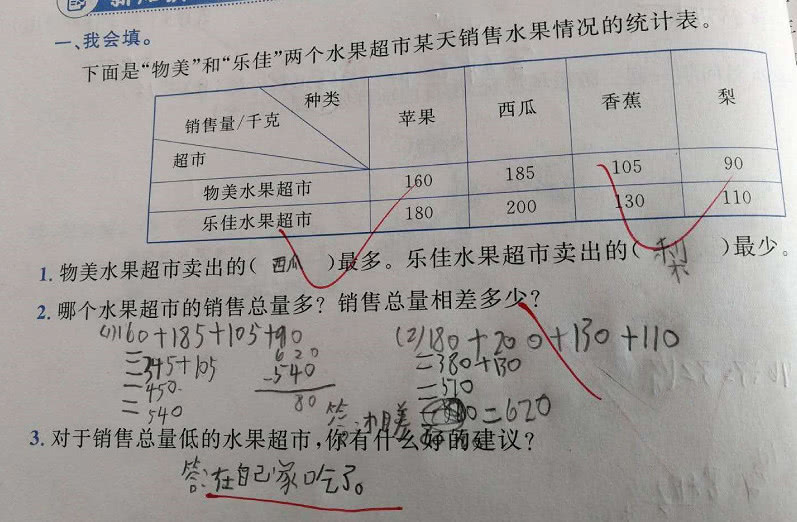 一、我会填。
下面是“物美”和“乐佳”两个水果超市某天销售水果情况的统计表。
种类 苹果 西瓜 香蕉 梨
销售量/千克
超市
物美水果超市 160 185 105 90
乐佳水果超市 180 200 130 110
1. 物美水果超市卖出的( 西瓜 )最多。乐佳水果超市卖出的( 利木 )最少。
2. 哪个水果超市的销售总量多？销售总量相差多少？
(1)160+185+105+90
=345+105
=450
=540
620
-540
80
(2)180+200+130+110
=380+130
=510
=620
答:相差
3. 对于销售总量低的水果超市，你有什么好的建议？
答:在自己家吃了。